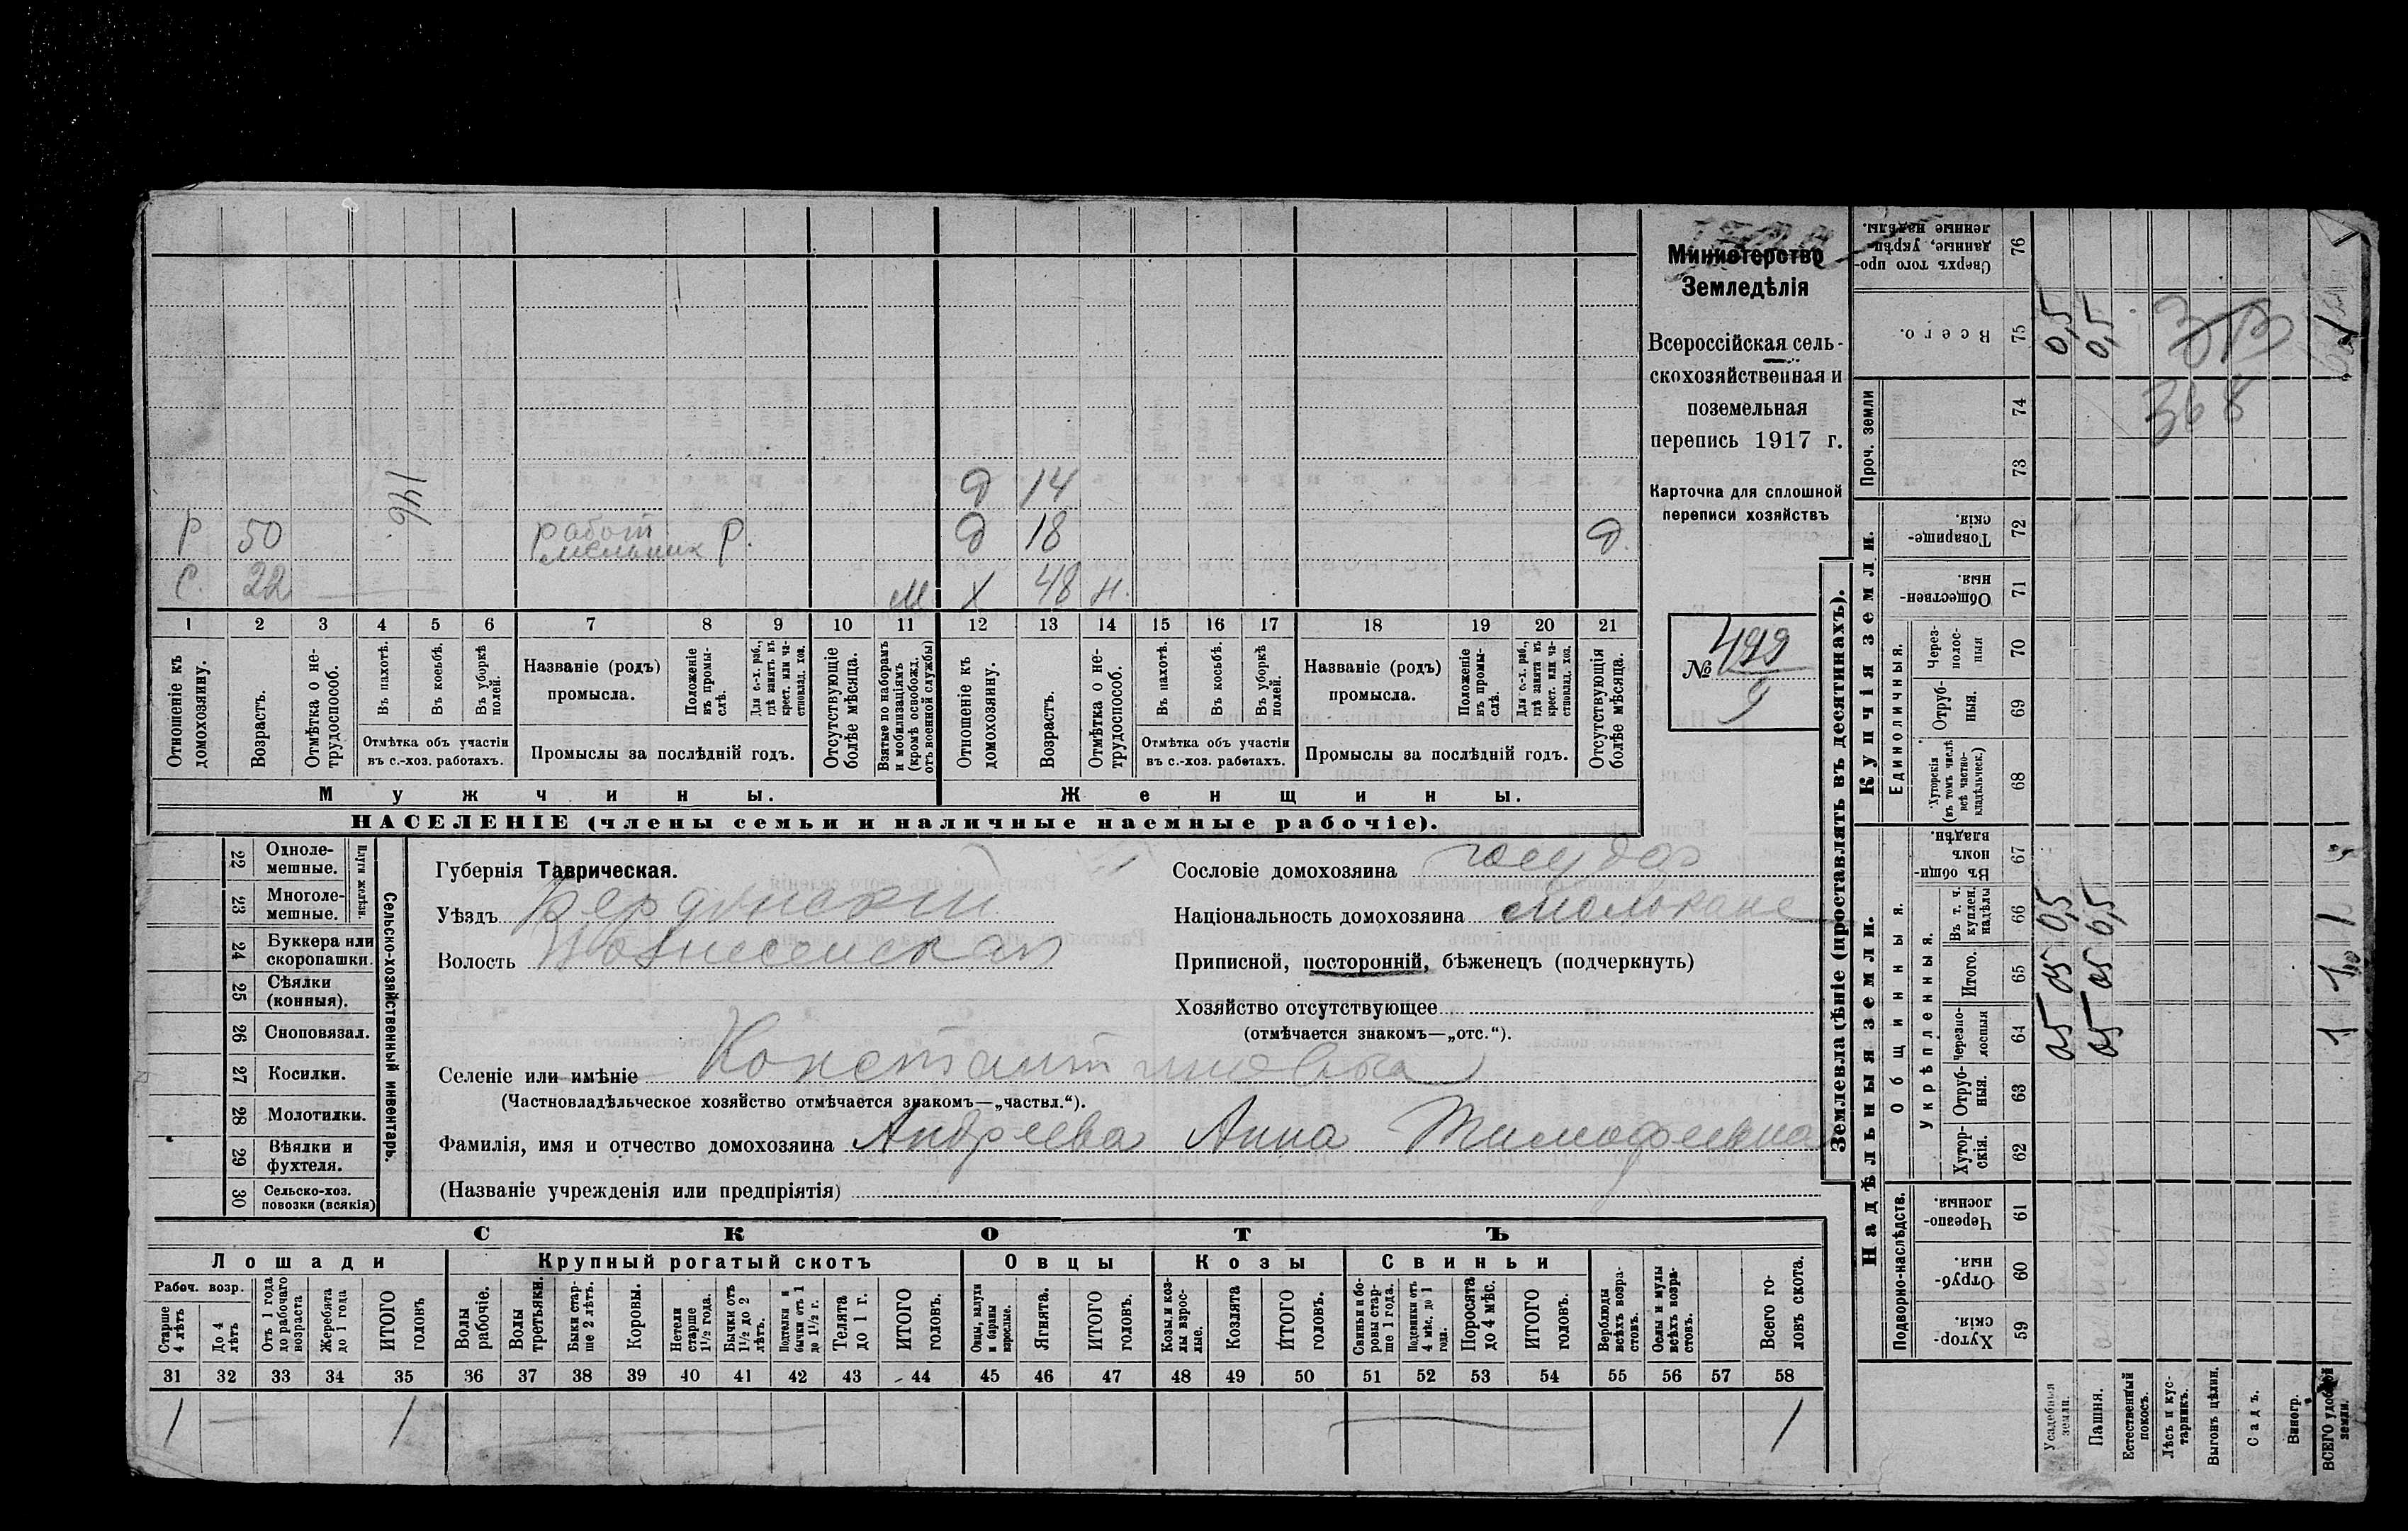 д 14
Р 50 работ. мельник Р. д 18 д.
С. 22 м х 48 н.
146
1 2 3 4 5 6 7 8 9 10 11 12 13 14 15 16 17 18 19 20 21
Отношеніе къ домохозяину.
Возрастъ.
Отмѣтка о не-
трудоспособ.
Въ пахотѣ.
Въ косьбѣ.
Въ уборкѣ
полей.
Отмѣтка объ участіи
въ с.-хоз. работахъ.
Названіе (родъ)
промысла.
Положеніе
въ промы-
слѣ.
Для с.-х. раб.,
гдѣ занятъ въ
крест. или ча-
стновлад. хоз.
Промыслы за послѣдній годъ.
Отсутствующіе
болѣе мѣсяца.
Взятые по наборамъ
и мобилизаціямъ
(кромѣ освобожд.
отъ военной службы)
Отношеніе къ
домохозяину.
Возрастъ.
Отмѣтка о не-
трудоспособ.
Въ пахотѣ.
Въ косьбѣ.
Въ уборкѣ
полей.
Отмѣтка объ участіи
въ с.-хоз. работахъ.
Названіе (родъ)
промысла.
Положеніе
въ промы-
слѣ.
Для с.-х. раб.,
гдѣ занята въ
крест. или ча-
стновлад. хоз.
Промыслы за послѣдній годъ.
Отсутствующія
болѣе мѣсяца.
Мужчины.
Женщины.
НАСЕЛЕНІЕ (члены семьи и наличные наемные рабочіе).
Министерство
Земледѣлія
Всероссійская сель-
скохозяйственная и
поземельная
перепись 1917 г.
Карточка для сплошной
переписи хозяйствъ
№ 499
9
22 Одноле-
мешные.
23 Многоле-
мешные.
Плуги желѣзн.
24 Буккера или
скоропашки.
25 Сѣялки
(конныя).
26 Сноповязал.
27 Косилки.
28 Молотилки.
29 Вѣялки и
фухтеля.
30 Сельско-хоз.
повозки (всякія)
Сельско-хозяйственный инвентарь.
Губернія Таврическая.
Уѣздъ Бердянскій
Волость Вознесенская
Сословіе домохозяина государ
Національность домохозяина Молокане
Приписной, посторонній, бѣженецъ (подчеркнуть)
Хозяйство отсутствующее
(отмѣчается знакомъ—„отс.“).
Селеніе или имѣніе Константиновка
(Частновладѣльческое хозяйство отмѣчается знакомъ—„частвл.“).
Фамилія, имя и отчество домохозяина Андреева Анна Тимофеевна
(Названіе учрежденія или предпріятія)
СКОТЪ
Лошади
Крупный рогатый скотъ
Овцы
Козы
Свиньи
Рабоч. возр.
Старше
4 лѣтъ
До 4
лѣтъ
Отъ 1 года
до рабочаго
возраста
Жеребята
до 1 года
ИТОГО
головъ
Волы
рабочіе.
Волы
третьяки.
Быки стар-
ше 2 лѣтъ.
Коровы.
Нетели
старше
1½ года.
Бычки отъ
1½ до 2
лѣтъ.
Подтелки и
бычки отъ 1
до 1½ г.
Телята
до 1 г.
ИТОГО
головъ.
Овцы, валухи
и бараны
взрослые.
Ягнята.
ИТОГО
головъ.
Козы и коз-
лы взрос-
лые.
Козлята
ИТОГО
головъ.
Свиньи и бо-
ровы стар-
ше 1 года.
Подсвинки отъ
4 мѣс. до 1
года.
Поросята
до 4 мѣс.
ИТОГО
головъ.
Верблюды
всѣхъ возра-
стовъ.
Ослы и мулы
всѣхъ возра-
стовъ.
Всего го-
ловъ скота.
31 32 33 34 35 36 37 38 39 40 41 42 43 44 45 46 47 48 49 50 51 52 53 54 55 56 57 58
1 — 1 1
Землевладѣніе (проставлять въ десятинахъ).
Надѣльныя земли.
Купчія земли.
Проч. земли
Подворно-наслѣдств.
Общинныя.
Укрѣпленныя.
Единоличныя.
Хутор-
скія. 59
Отруб-
ныя. 60
Черезпо-
лосныя. 61
Хутор-
скія. 62
Отруб-
ныя. 63
Черезпо-
лосныя 64
Итого. 65
Въ т. ч.
куплен.
надѣлы 66
Въ общи-
номъ
владѣн. 67
Хуторскія
(въ томъ числѣ
всѣ частно-
владѣльческ.) 68
Отруб-
ныя. 69
Через-
полос-
ныя 70
Обществен-
ныя. 71
Товарище-
скія. 72
73
74
Всего. 75
Сверхъ того про-
данные, укрѣп-
ленные надѣлы. 76
Усадебныя
земли. 05 05 0,5 0,5
Пашня. 05 05 0,5 0,5
Естественный
покосъ.
Лѣсъ и кус-
тарникъ.
Выгонъ цѣлин.
Садъ.
Виногр.
ВСЕГО удобной
земли. 1 1 1 1
368